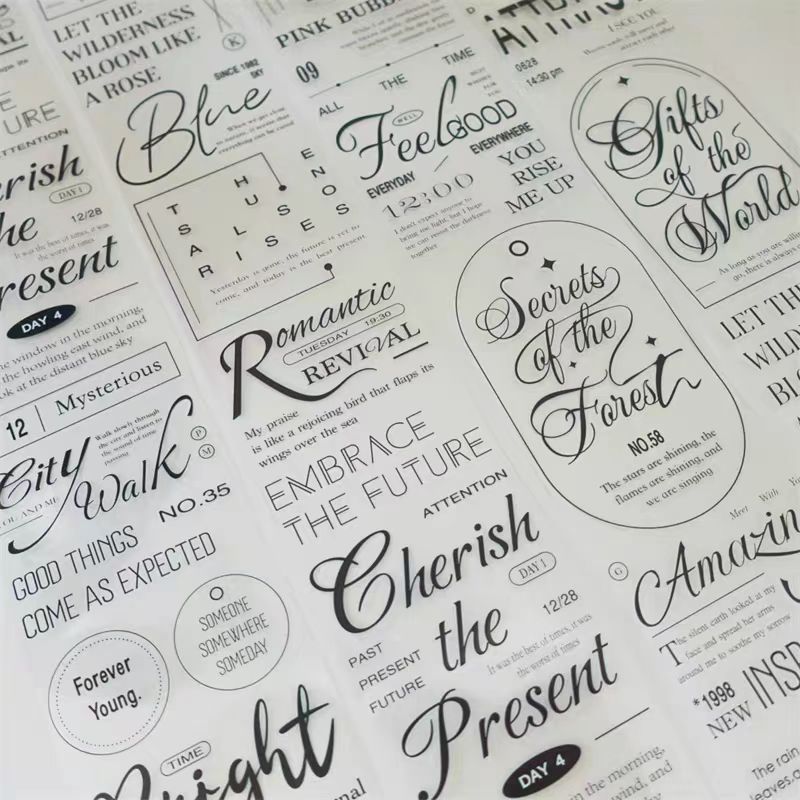 LET THE
WILDERNESS
BLOOM LIKE
A ROSE
K
SINCE 1982
SKY
Blue
When we get close
to nature, it seems that
everything can be cured
T H E
S U N
A L S O
R I S E S
Yesterday is gone, the future is yet to
come, and today is the best present
Romantic
TUESDAY 19:30
REVIVAL
My praise
is like a rejoicing bird that flaps its
wings over the sea
EMBRACE
THE FUTURE
ATTENTION
Cherish
DAY 1
the
12/28
It was the best of times, it was
the worst of times
PAST
PRESENT
FUTURE
Present
DAY 4
URE
ATTENTION
erish
DAY 1
he
12/28
It was the best of times, it was
the worst of times
resent
DAY 4
he window in the morning,
the howling east wind, and
ok at the distant blue sky
12 | Mysterious
City
Walk slowly through
the city and listen to
the sound of time
passing
P
M
Walk
YOU AND ME
NO.35
GOOD THINGS
COME AS EXPECTED
Forever
Young.
SOMEONE
SOMEWHERE
SOMEDAY
TIME
PINK BUBB
09
ALL THE TIME
Feel
WELL
GOOD
EVERYDAY
EVERYWHERE
12:00
I don't expect anyone to
bring me light, but I hope
we can resist the darkness
together
YOU
RISE
ME UP
I SEE YOU
0628
14:30 pm
Gifts
of the
World
As long as you are willi
go, there is always
Secrets
of the
Forest
NO.58
The stars are shining, the
flames are shining, and
we are singing
LET TH
WILD
BL
Meet With Yo
G
Amazin
The silent earth looked at my
face and spread her arms
around me to soothe my sorrow
*1998
NEW
INSP
The rain
leaves, a